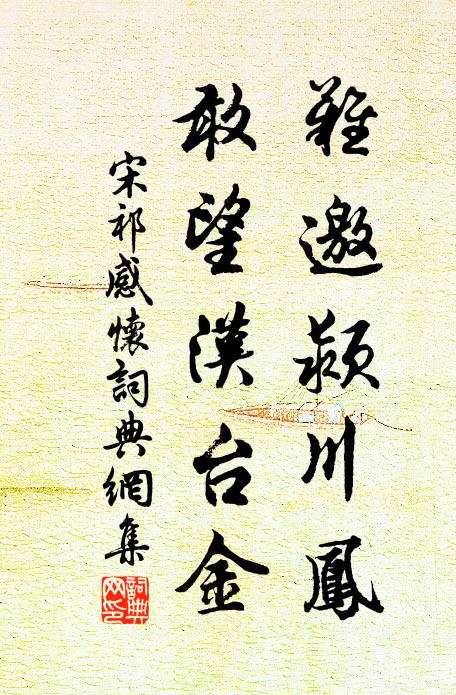 難邀潁川鳳
敢望漢台金
宋祁感懷詞典網集
詞典
网印